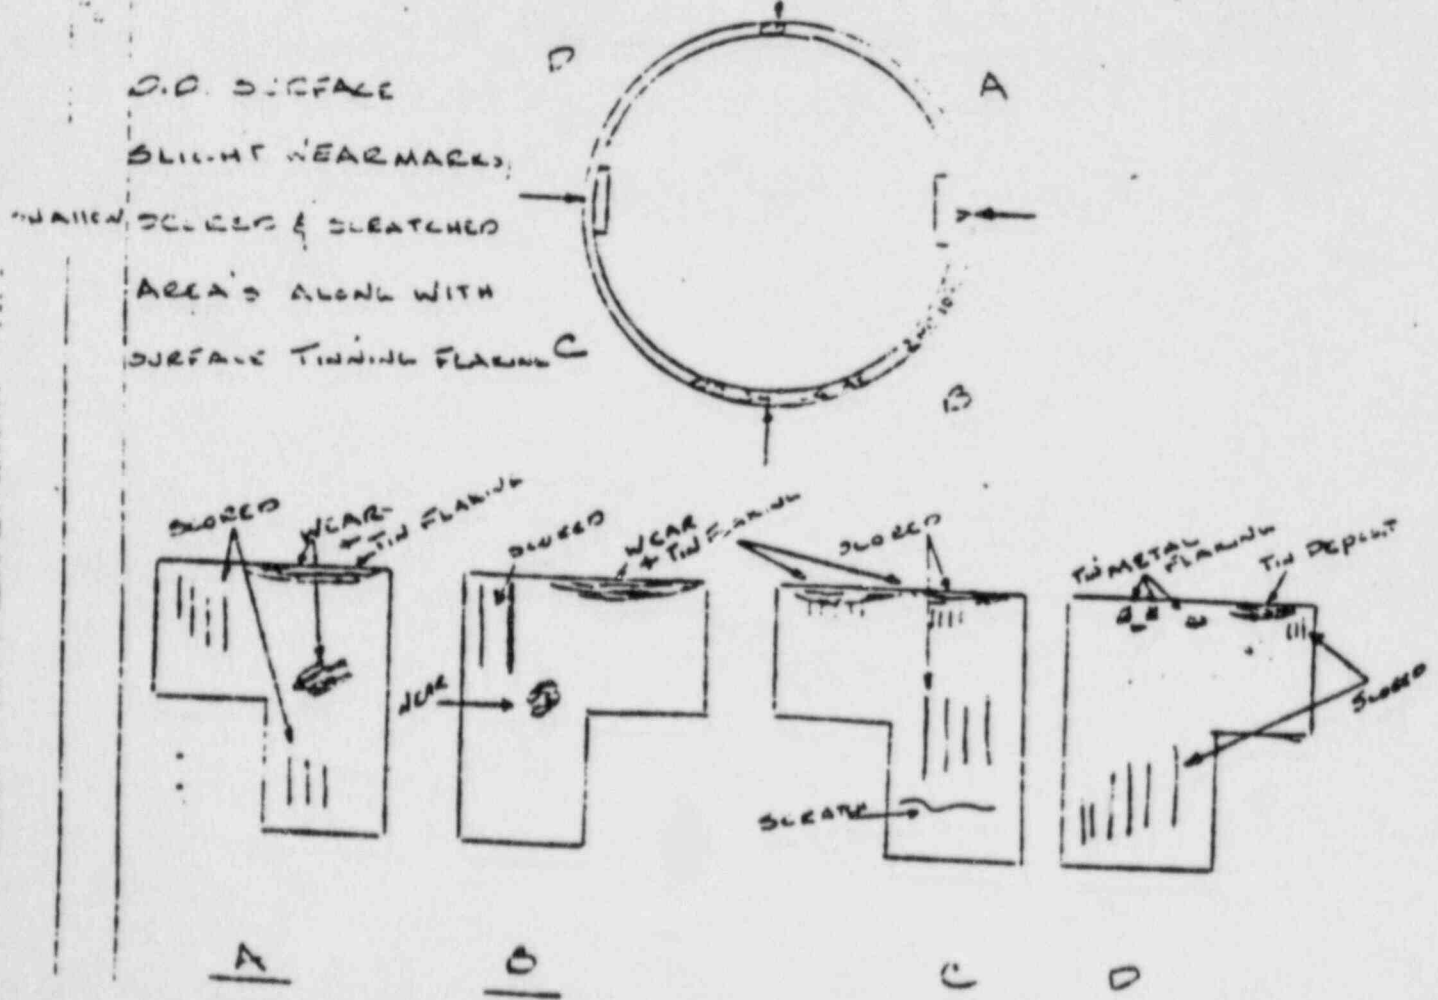 D
O.D. SURFACE
A
SLIGHT WEARMARKS,
SCORED & SCRATCHED
AREA'S ALONG WITH
SURFACE TINNING FLAKING
C
B
SCORED
WEAR
+ TIN FLAKING
SCORED
WEAR
+ TIN FLAKING
SCORED
TIN METAL
FLAKING
TIN DEPOSIT
WEAR
SCORED
SCRATCH
A
B
C
D